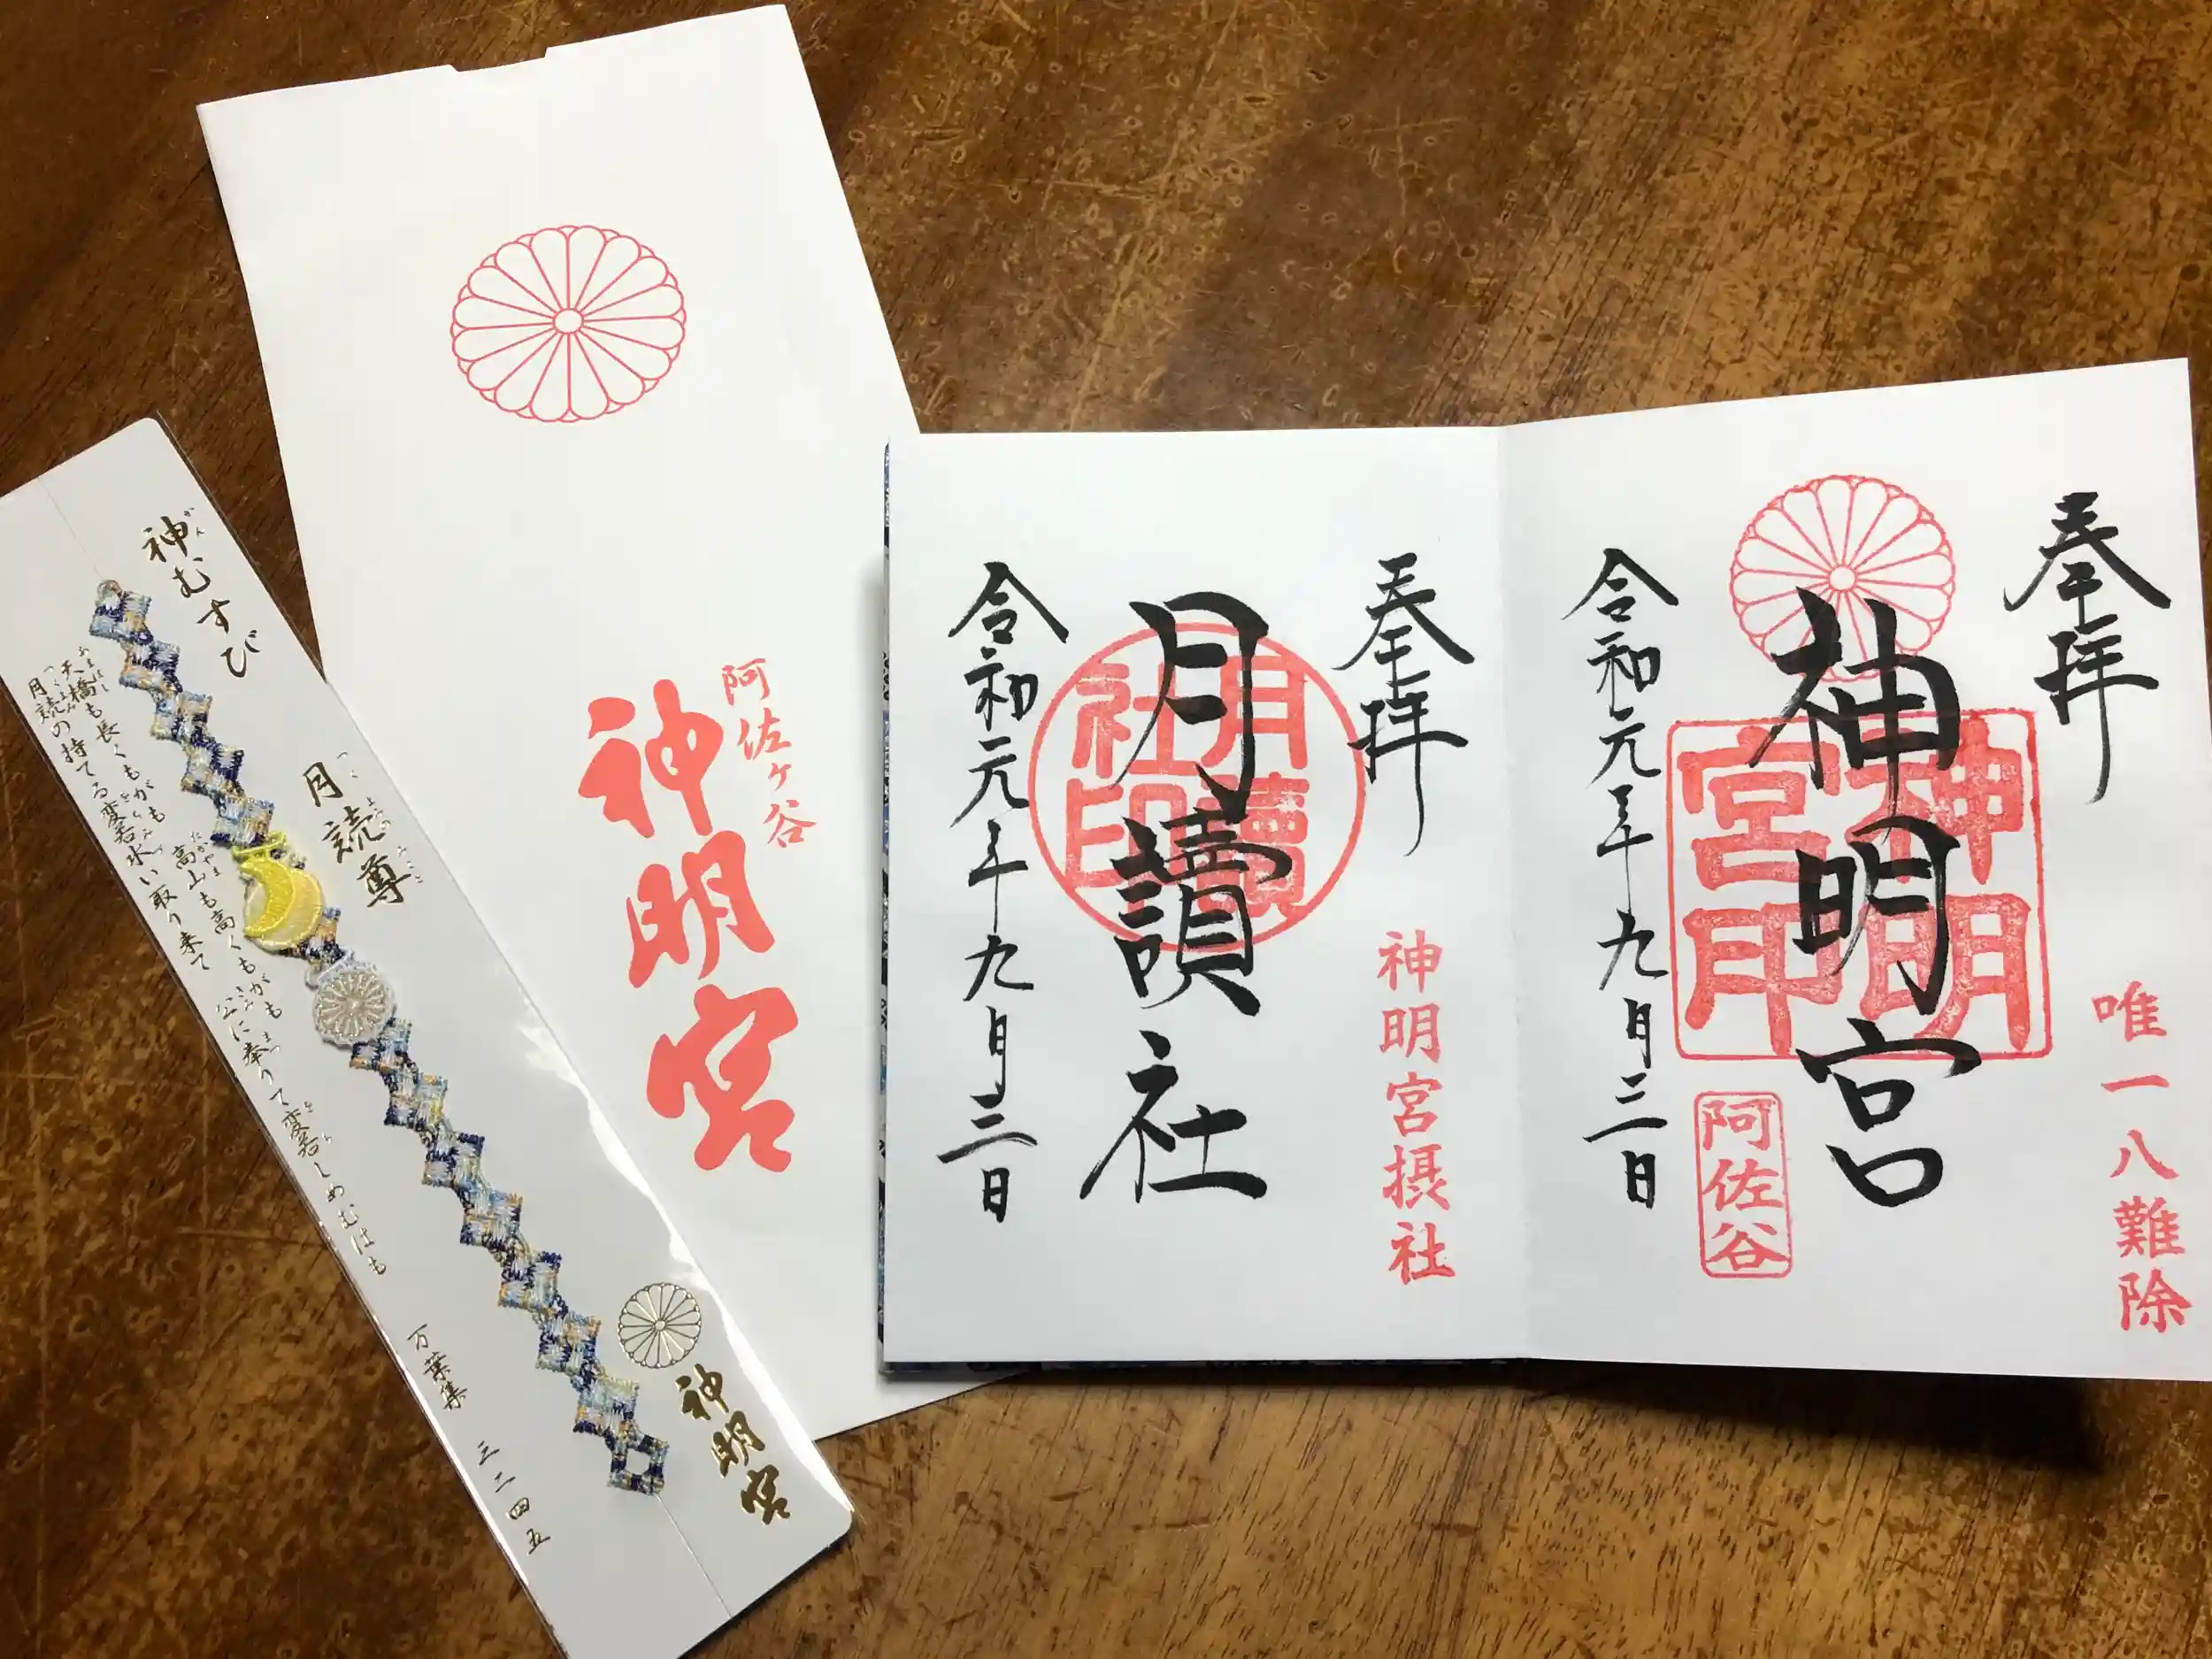 神むすび
かん
月読尊
つくよみのみこと
天橋も長くもがも
高山も高くもがも
月読の持てる変若水い取り来て
公に奉りて変若しめむはも
万葉集 三二四五
神明宮
阿佐ヶ谷
神明宮
奉拝
神明宮
唯一八難除
神明宮印
阿佐谷
令和元年九月三日
奉拝
月讀社
神明宮摂社
月讀社印
令和元年九月三日